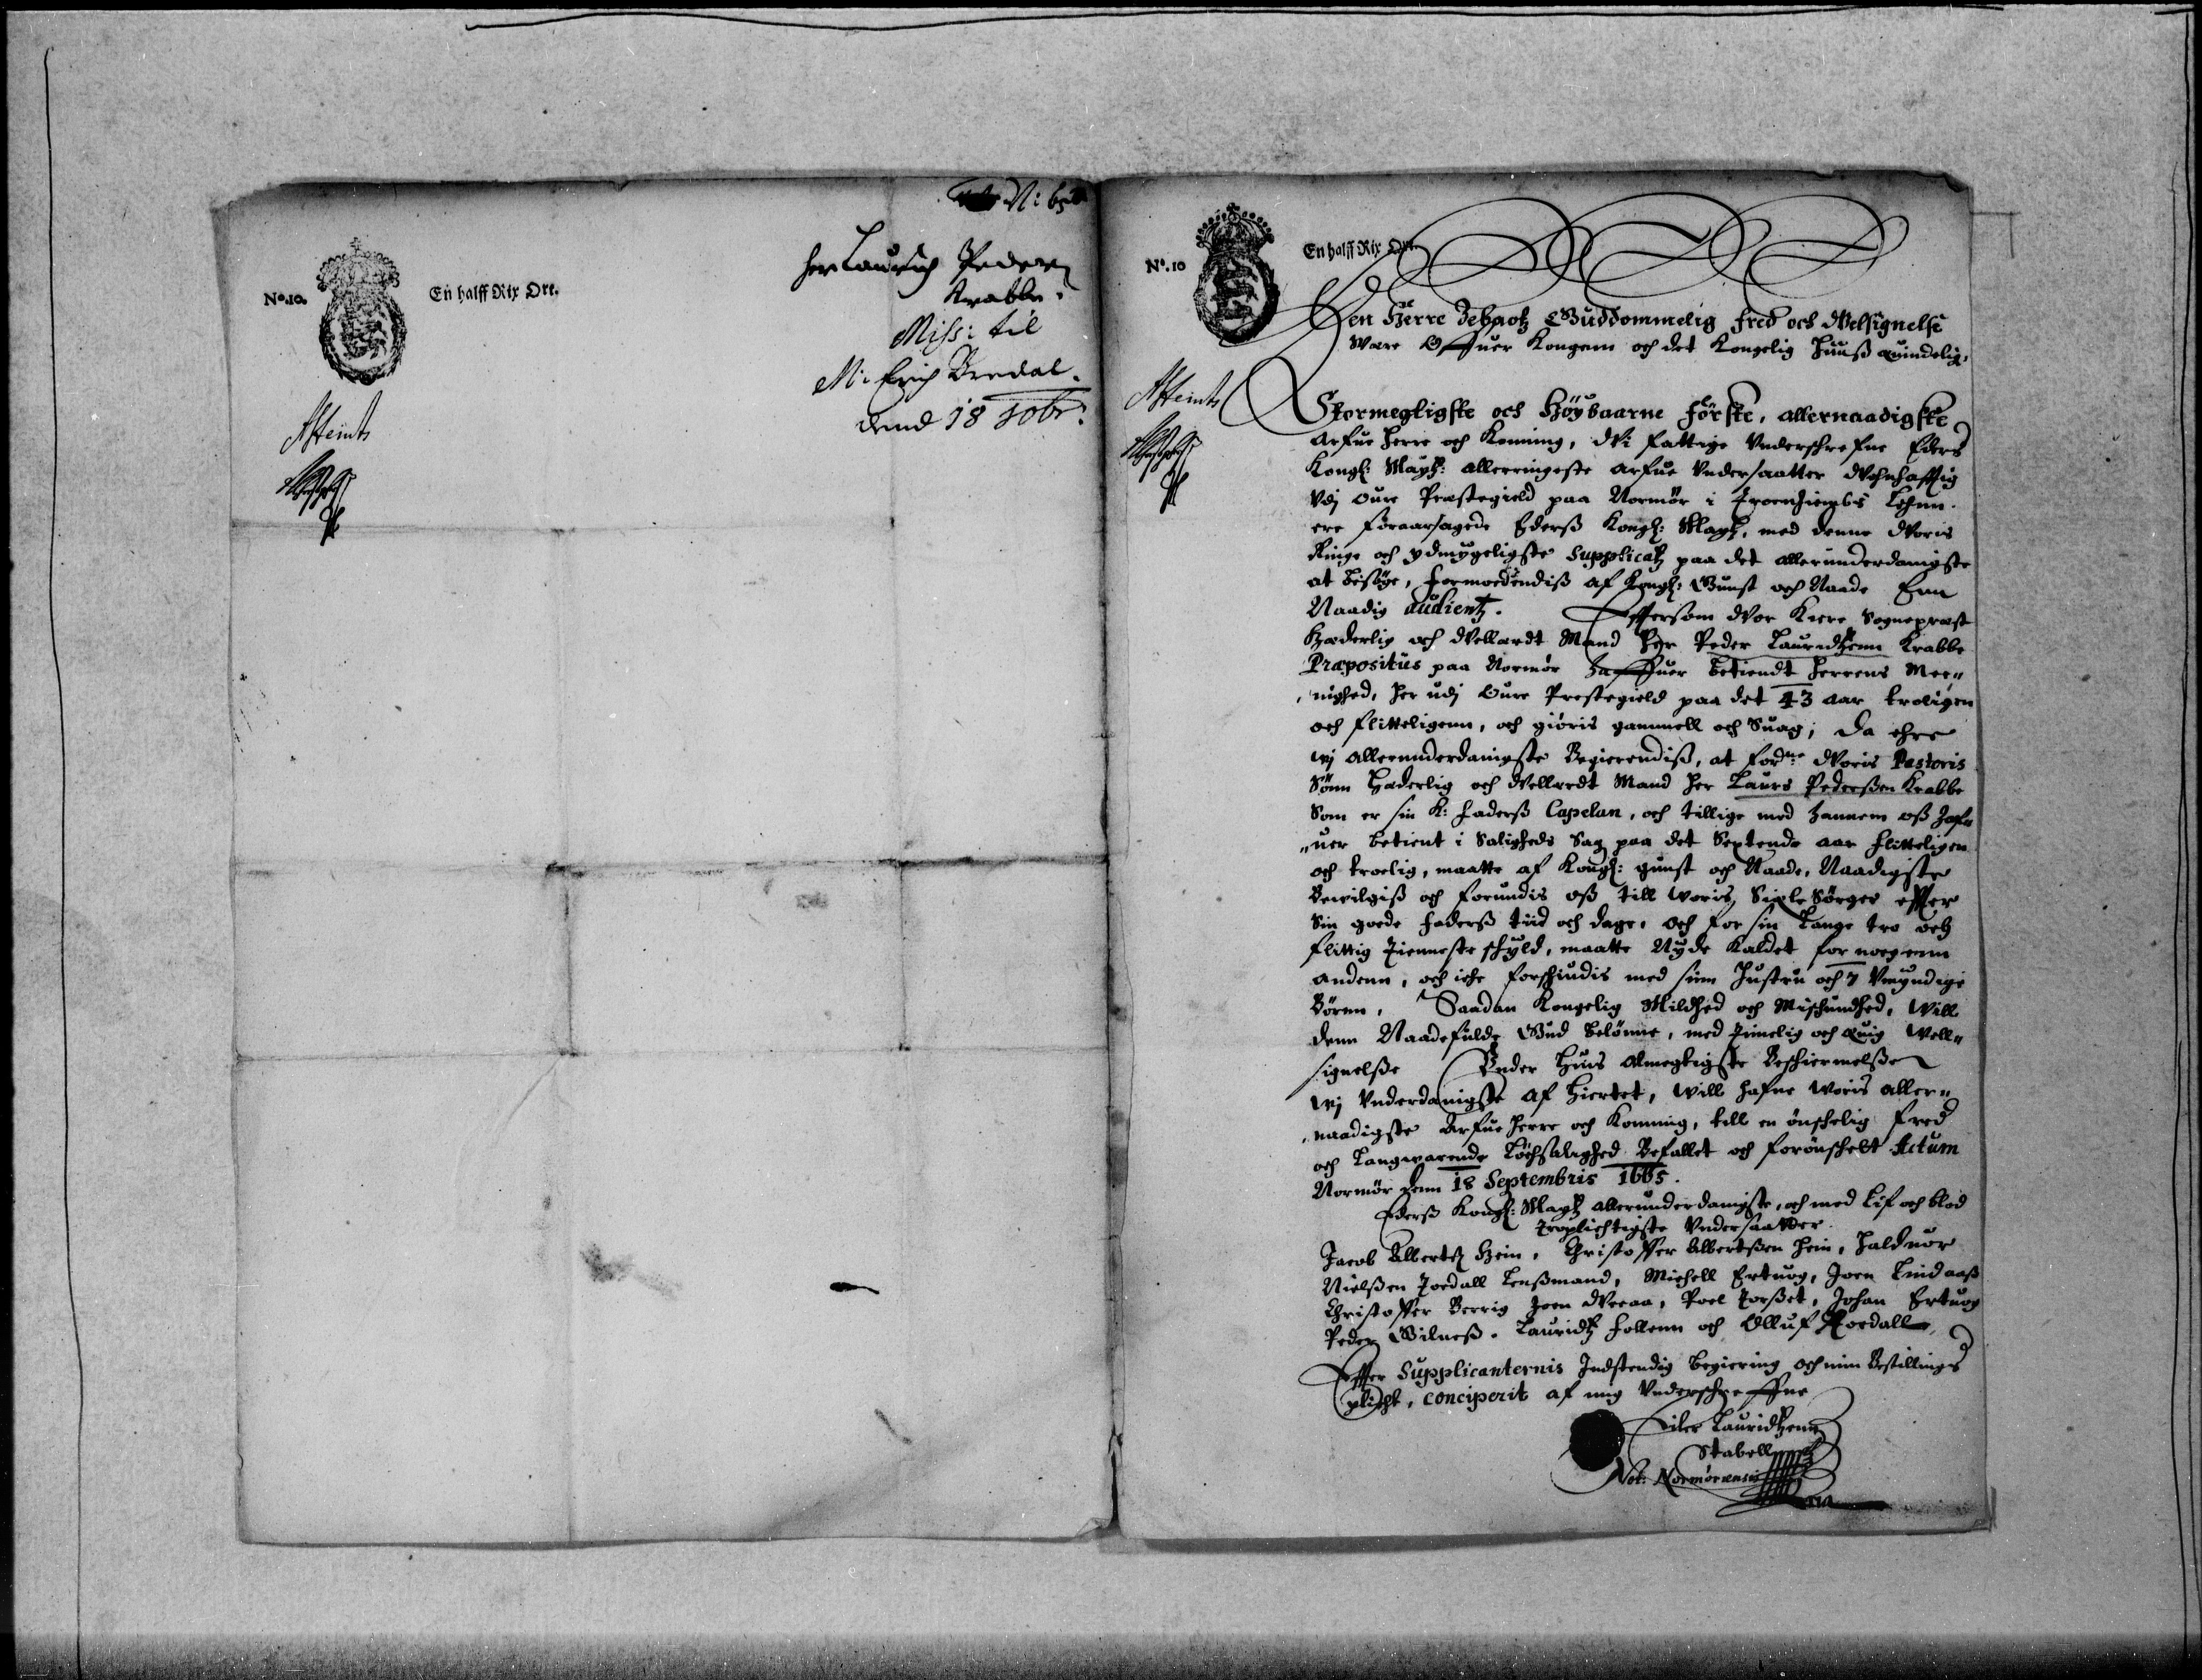 N: 65
No. 10.
En halff Rix Ort.
Her Laurids Pedersen
Krabbe.
Miss: til
M: Erich Bredal.
dend 18 10br:
No. 10
En halff Rix Ort.
Den Herre Zebaotz Guddommelig Fred och Velsignelse
Være Offuer Kongenn och det Kongelig Huuss Euindelig.
Stormegtigste och Höybaarne Förste, allernaadigste
Arfue Herre och Konning, Vi fattige Underschrefne Eders
Kongl: Mayt: allerringeste arfue Undersaatter Vohnhafftig
Udj Oure Præstegield paa Normör i Tronhiembs Lehnn
ere foraarsagede Ederss Kongl: Mayt, med denne Voris
Ringe och ydmygeligste Supplicatz paa det allerunderdanigste
at besöge, formoedendiss af Kongl: Gunst och Naade Enn
Naadig audientz. Effttersom Vor Kiere Sognepræst
Hæderlig och Vellærdt Mand Her Peder Lauridtzenn Krabbe
Præpositus paa Normör Haffuer betiendt Herrens Mee„
„nighed, her udj Oure Prestegield paa det 43 aar troligen
och flitteligenn, och giöris gammell och Suag; da ehre
wj allerunderdanigste Begierendiss, at fordne Voris Pastoris
Sönn Hæderlig och Vellærdt Mand Her Laurs Pederssen Krabbe
Som er sin K: Faderss Capelan, och tillige med hannem oss Haf„
„uer betient i Saligheds Sag paa det Sextende aar flitteligen
och troelig, maatte af Kongl: gunst och Naade, Naadigste
Bevilgiss och forundis oss till Voris Siæle Sörger effter
Sin goede Faderss tiid och dage, och for sin Lange tro och
flittig Tienneste schyld, maatte Nyde Kaldet for nogenn
andenn, och iche forschiudis med sinn Hustru och 7 Umyndige
Börnn, Saadan Kongelig Mildhed och Mischundhed, Will
denn Naadefulde Gud belönne, med Timelig och Euig Well„
signelsse Under Huis Almegtigste Beschiermelsse
Wj Underdanigste af Hiertet, Will hafue Woris aller„
„naadigste Arfue Herre och Konning, till en önschelig Fred
och Langwarende Löchsalighed Befallet och forönschet Actum
Normör denn 18 Septembris 1665.
Ederss Kongl: Mayt allerunderdanigste, och med Lif och blod
troplichtigste Undersaatter
Jacob Albertz Hein, Christoffer Albertssen Hein, Halduor
Nielssen Toedall Lenssmand, Michell Ertuog, Joen Lindaass
Christoffer Berrig Joen Veeaa, Poel Torsset, Johan Ertuog
Peder Gilness, Lauridtz Follenn och Olluf Toedall
Effter Supplicanternis Indstendig begiering, och min Bestillings
plicht, conciperit af mig Underschreffne
Eiler Lauridtzenn
Stabell
Not: Normörensis